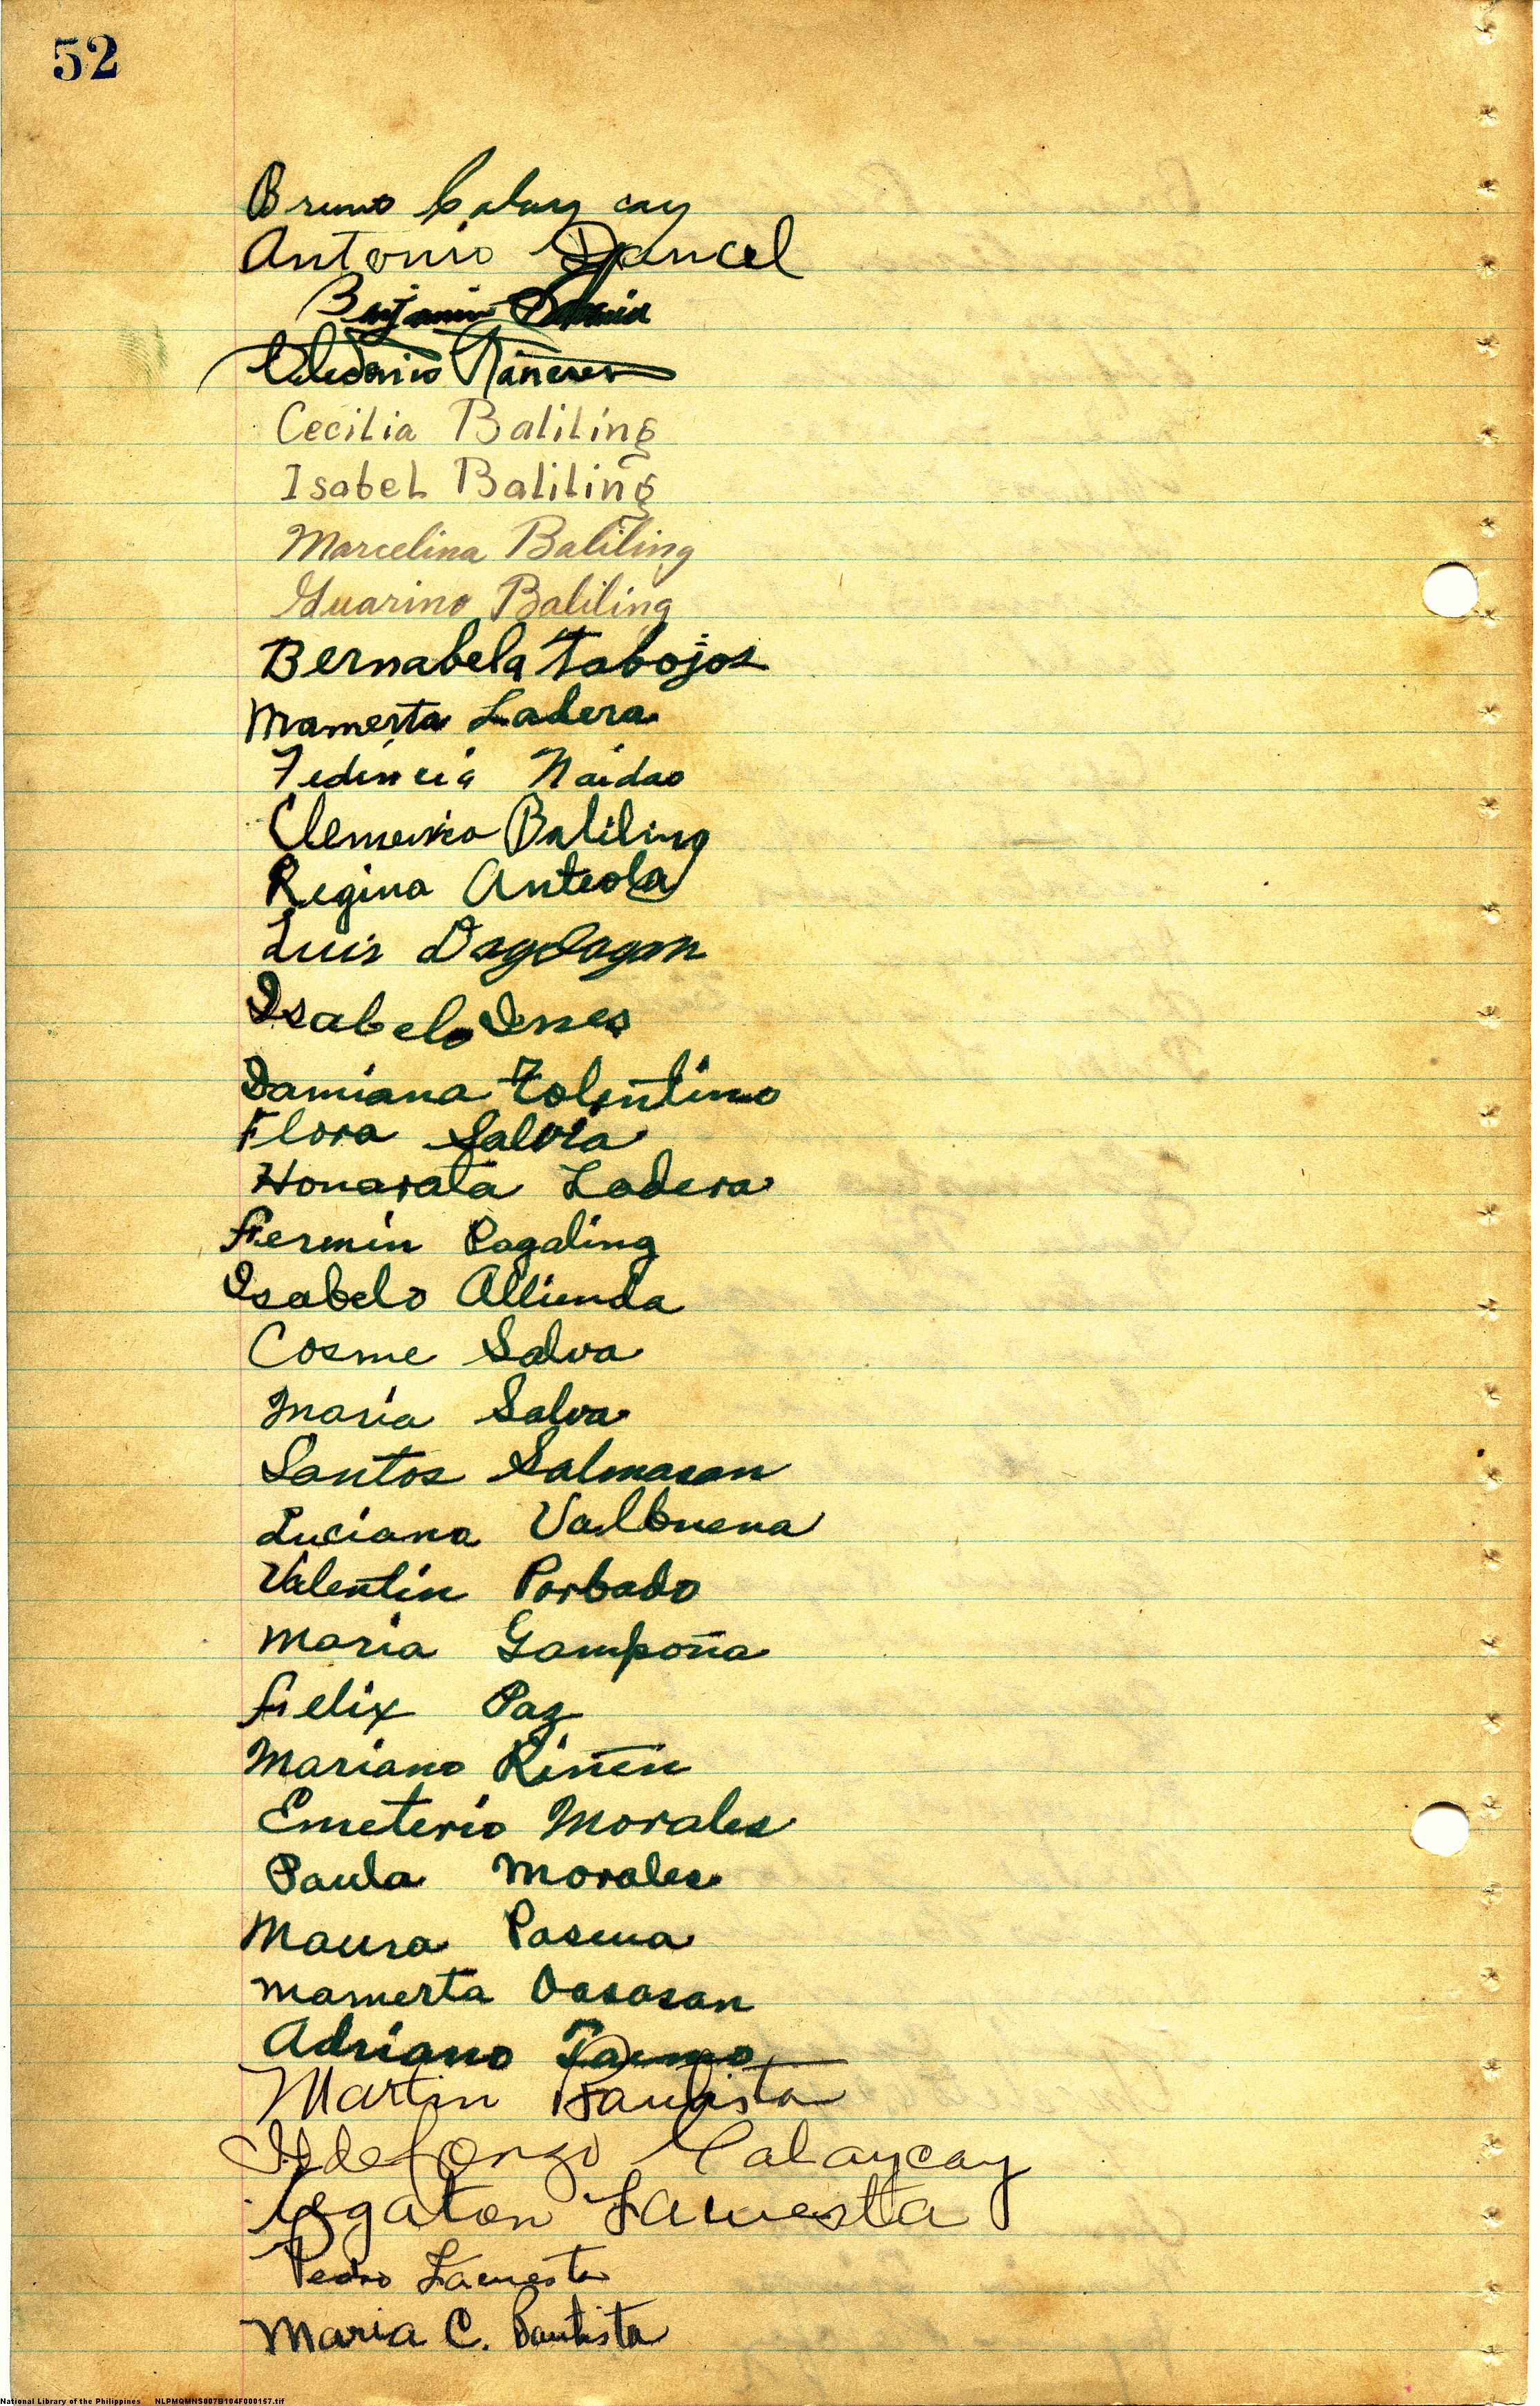 52
Bruno
Antonio Dancel
Benjamin
Celedonio
Cecilia Baliling
Isabel Baliling
Marcelina Baliling
Guarino Baliling
Bernabela Tabojos
Mamerta Ladera
Fedencia Naidao
Baliling
Regina Anteola
Luis Dagdagan
Isabelo Innes
Damiana Tolentino
Flora Salvia
Honarata Ladera
Fermin Pagaling
Isabelo Allienda
Cosme Salva
Maria Salva
Santos Salmasan
Luciana Valbuena
Valentin Porbado
Maria Gampoña
Felix Paz
Mariano Riñen
Emeterio Morales
Paula Morales
Maura Pascua
Mamerta Oasasan
Adriano
Martin Bautista
Ildefonzo Calaycay
Agaton Lacuesta
Pedro Lacuesta
Maria C. Bautista
National Library of the Philippines NLPMQMNS007B104F000167.tif